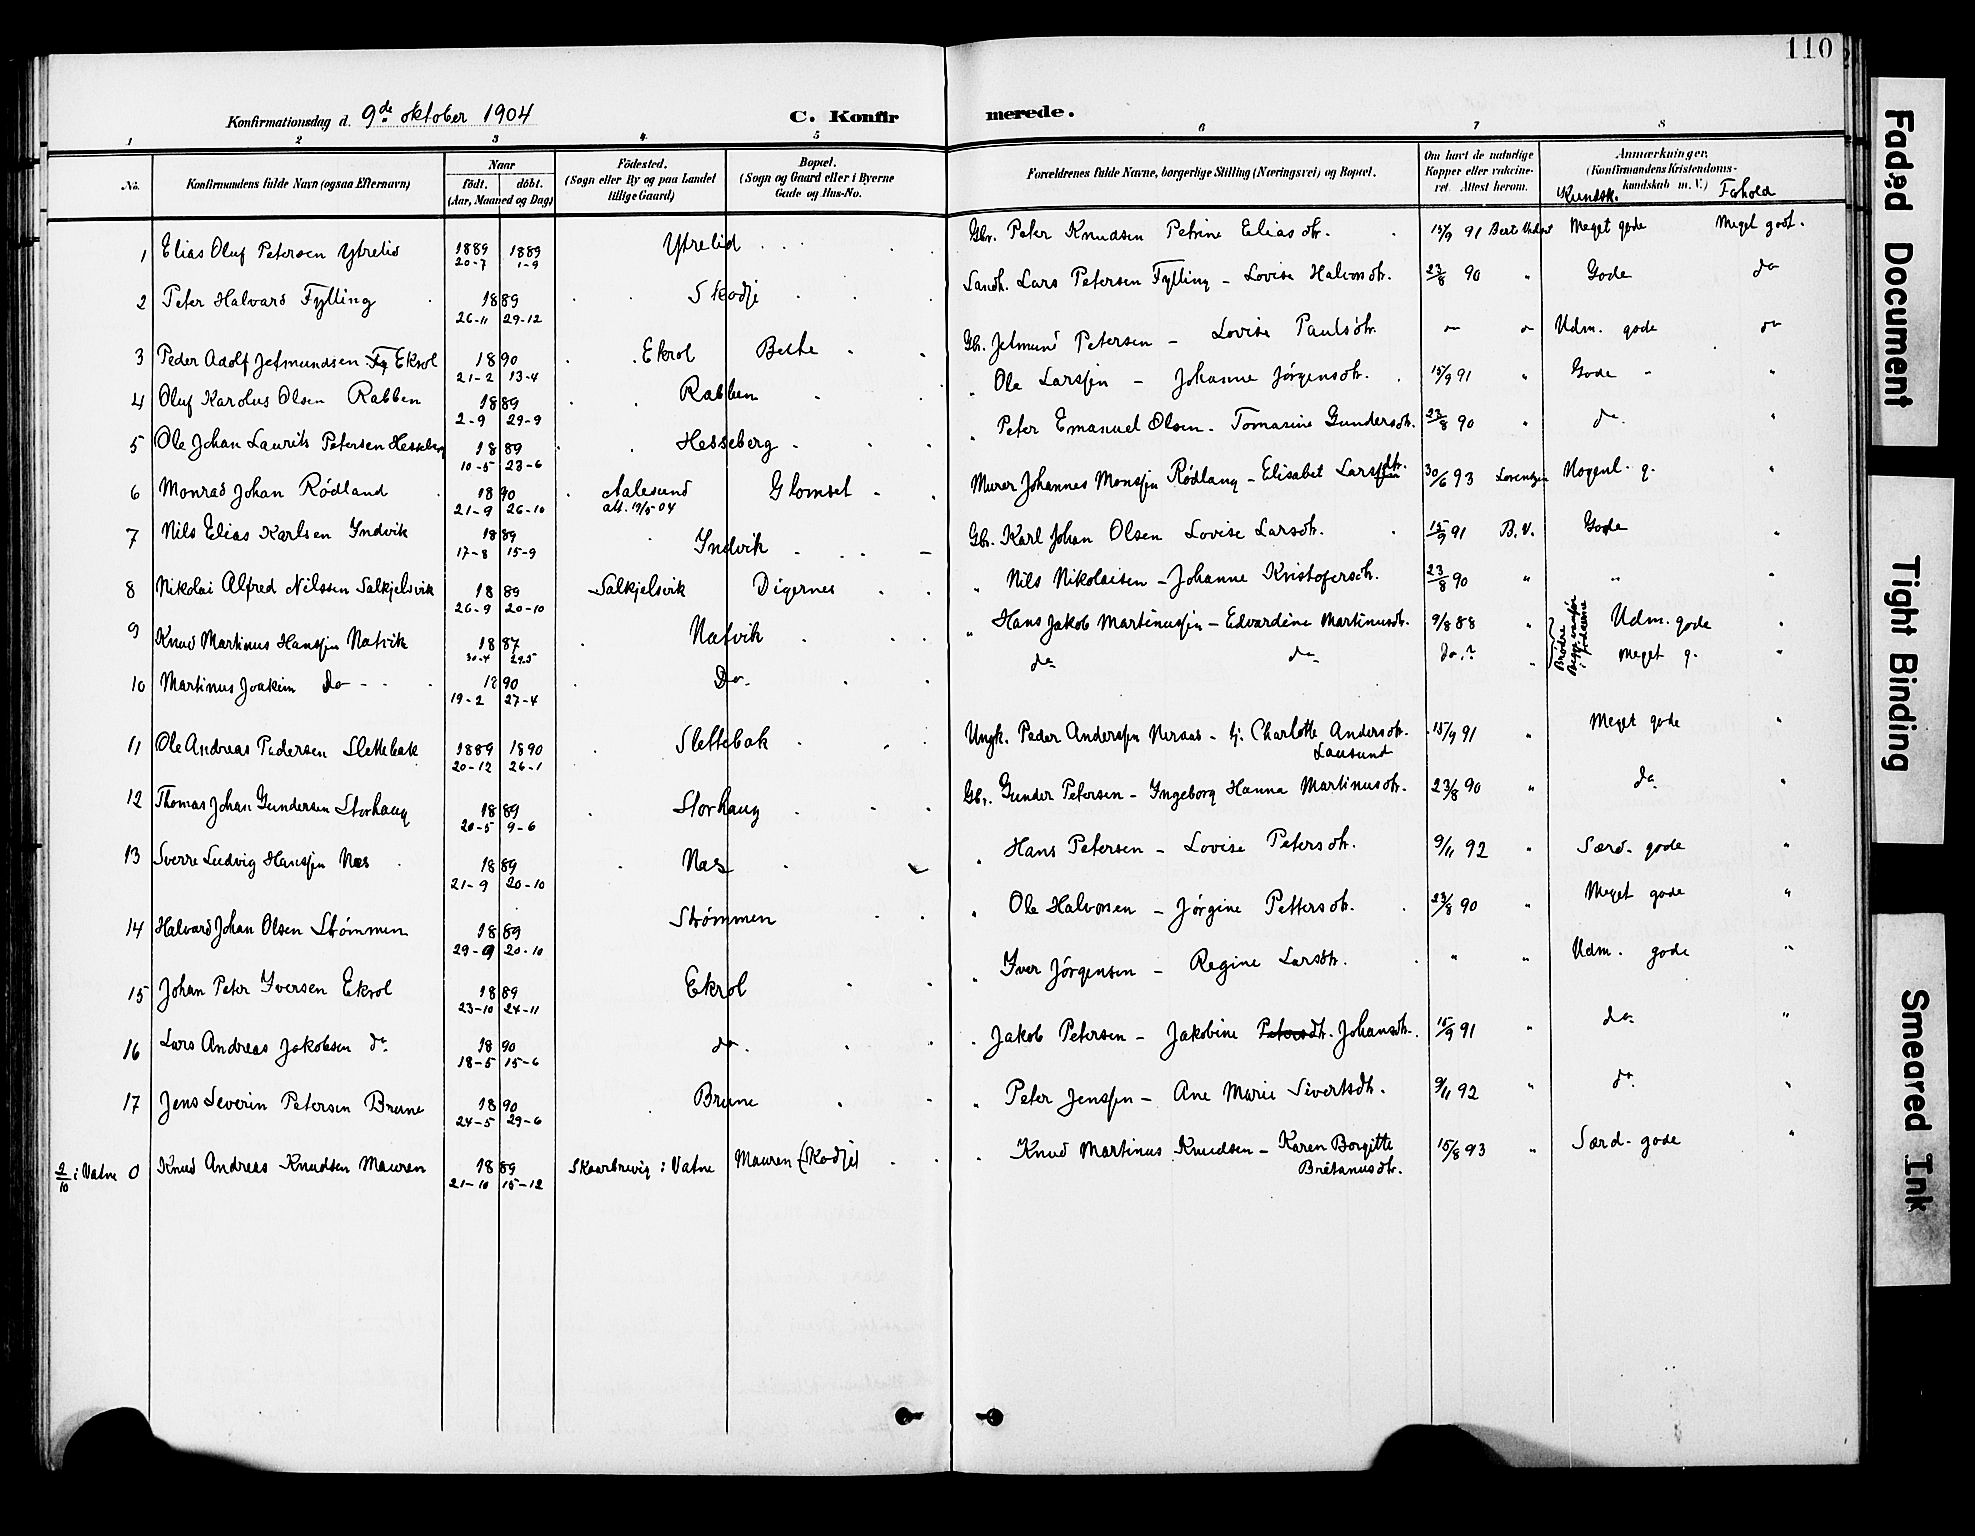 110
Konfirmationsdag d. 9de oktober 1904
C. Konfirmerede.
1 2 3 4 5 6 7 8
No. Konfirmandens fulde Navn (ogsaa Efternavn) Naar födt. döbt. (Aar, Maaned og Dag) Födested. (Sogn eller By og paa Landet tillige Gaard) Bopæl. (Sogn og Gaard eller i Byerne Gade og Hus-No. Forældrenes fulde Navne, borgerlige Stilling (Næringsvei) og Bopæl. Om havt de naturlige Kopper eller vaccineret. Attest herom. Anmærkninger. (Konfirmandens Kristendomskundskab m. V.) Kundsk. Forhold
1 Elias Oluf Petersen Ytrelid 1889 20-7 1889 1-9 Ytrelid Gbr. Peter Knudsen Petrine Eliasdtr. 15/9 91 Meget gode Meget godt.
2 Peter Halvard Fylling 1889 26-11 29-12 Skodje Landh. Lars Petersen Fylling - Lovise Halvorsdtr. 23/8 90 " Gode do
3 Peder Adolf Jetmundsen Ekrol 1890 21-2 13-4 Ekrol Gbr. Jetmund Petersen - Lovise Paulsdtr. Udm. gode do
4 Oluf Karolus Olsen Rabben 1889 2-9 29-9 Rabben " Ole Larssen - Johanne Jørgensdtr. 15/9 91 " Gode "
5 Ole Johan Laurits Petersen Hesseberg 1889 10-5 23-6 Hesseberg " Peter Emanuel Olsen - Tomasine Gundersdtr. 23/8 90 " do "
6 Monrad Johan Rødland 1890 21-9 26-10 Aalesund att. 19/5-04 Glomset Murer Johannes Monssen Rødland - Elisabet Larsdtr. 30/6 93 Lorentzen g. "
7 Nils Elias Karlsen Indvik 1889 17-8 15-9 Indvik Gbr. Karl Johan Olsen Lovise Larsdtr. 15/9 91 B.V. Gode "
8 Nikolai Alfred Nilssen Salkjelsvik 1889 26-9 20-10 Salkjelsvik Digernes " Nils Nikolaisen - Johanne Kristofersdtr. 23/8 90 " " "
9 Knud Martinus Hanssen Natvik 1887 30-4 29-5 Natvik " Hans Jakob Martinussen - Edvardine Martinusdtr. 9/8 88 " Brødre Udm. gode "
10 Martinus Joakim do 1890 19-2 27-4 Do. do do do. ? " Meget g. "
11 Ole Andreas Pedersen Slettebak 1889 20-12 1890 26-1 Slettebak Ungk. Peder Anderssen Neraas - Pj. Charlotte Andersdtr. Lausund 15/9 91 " Meget gode "
12 Thomas Johan Gundersen Storhaug 1889 20-5 9-6 Storhaug Gbr. Gunder Petersen - Ingeborg Hanna Martinusdtr. 23/8 90 " do "
13 Sverre Ludvig Hanssen Næs 1889 21-9 20-10 Næs " Hans Petersen - Lovise Petersdtr. 9/11 92 " Særd. gode "
14 Halvard Johan Olsen Strømmen 1889 29-9 20-10 Strømmen " Ole Halvorsen - Jørgine Pettersdtr. 23/8 90 " Meget gode "
15 Johan Peter Iversen Ekrol 1889 23-10 24-11 Ekrol " Iver Jørgensen - Regine Larsdtr. " " Udm. gode "
16 Lars Andreas Jakobsen do 1890 18-5 15-6 do. " Jakob Petersen - Jakobine Petersdtr. Johansdtr. 15/9 91 " do "
17 Jens Severin Petersen Brune 1890 24-5 29-6 Brune " Peter Jenssen - Ane Marie Sivertsdtr. 9/11 92 " do. "
2/10 i Vatne 0 Knud Andreas Knudsen Mauren 1889 21-10 15-12 Skaarbrevig i Vatne Mauren (Skodje) " Knud Martinus Knudsen - Karen Borgitte Brétanusdtr. 15/8 93 " Særd. gode "
Faded Document
Tight Binding
Smeared Ink